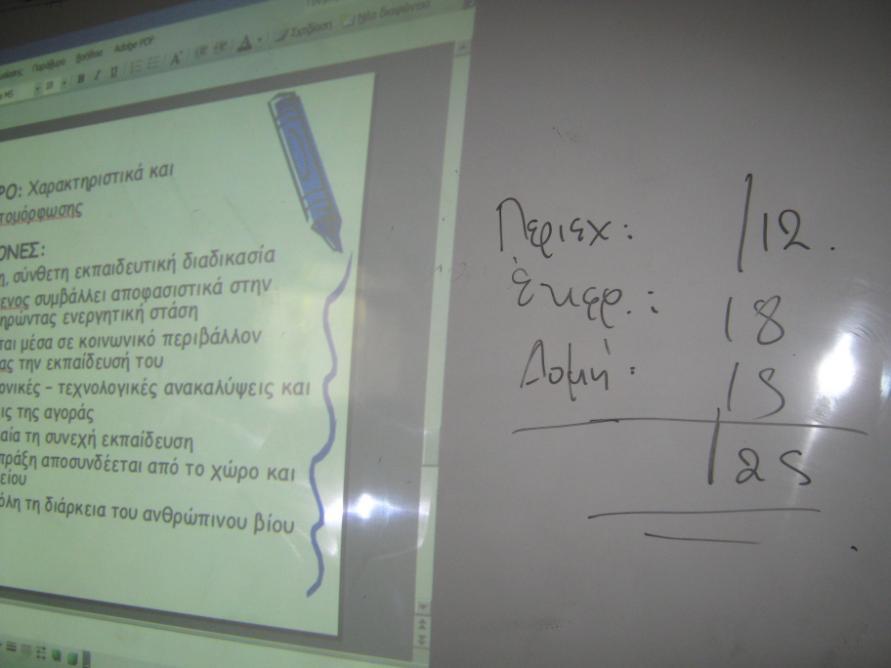 Παράθυρο Βοήθεια Adobe PDF
Σχεδίαση Νέα διαφάνεια
ΡΟ: Χαρακτηριστικά και
τομόρφωσης
ΟΝΕΣ:
η, σύνθετη εκπαιδευτική διαδικασία
ενος συμβάλλει αποφασιστικά στην
ηρώντας ενεργητική στάση
ται μέσα σε κοινωνικό περιβάλλον
ας την εκπαίδευσή του
ονικές - τεχνολογικές ανακαλύψεις και
ις της αγοράς
αία τη συνεχή εκπαίδευση
πράξη αποσυνδέεται από το χώρο και
είου
όλη τη διάρκεια του ανθρώπινου βίου
Περιεχ: /12.
Έκφρ.: /8
Δομή: /5
/25